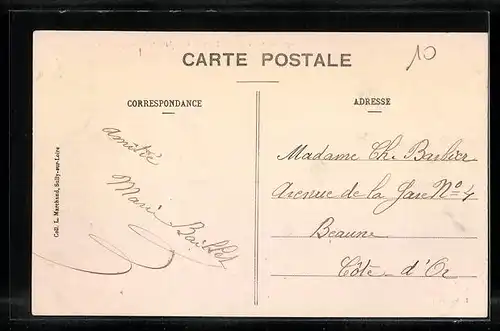 CARTE POSTALE
10
CORRESPONDANCE
ADRESSE
amitié
Marie
Madame Ch. Barbier
Avenue de la Gare No 4
Beaune
Côte d'Or
Coll. L. Marchand, Sully-sur-Loire